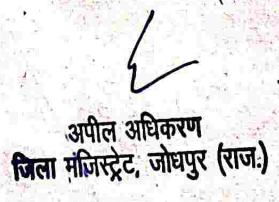 अपील अधिकरण
जिला मंजिस्ट्रेट, जोधपुर (राज.)